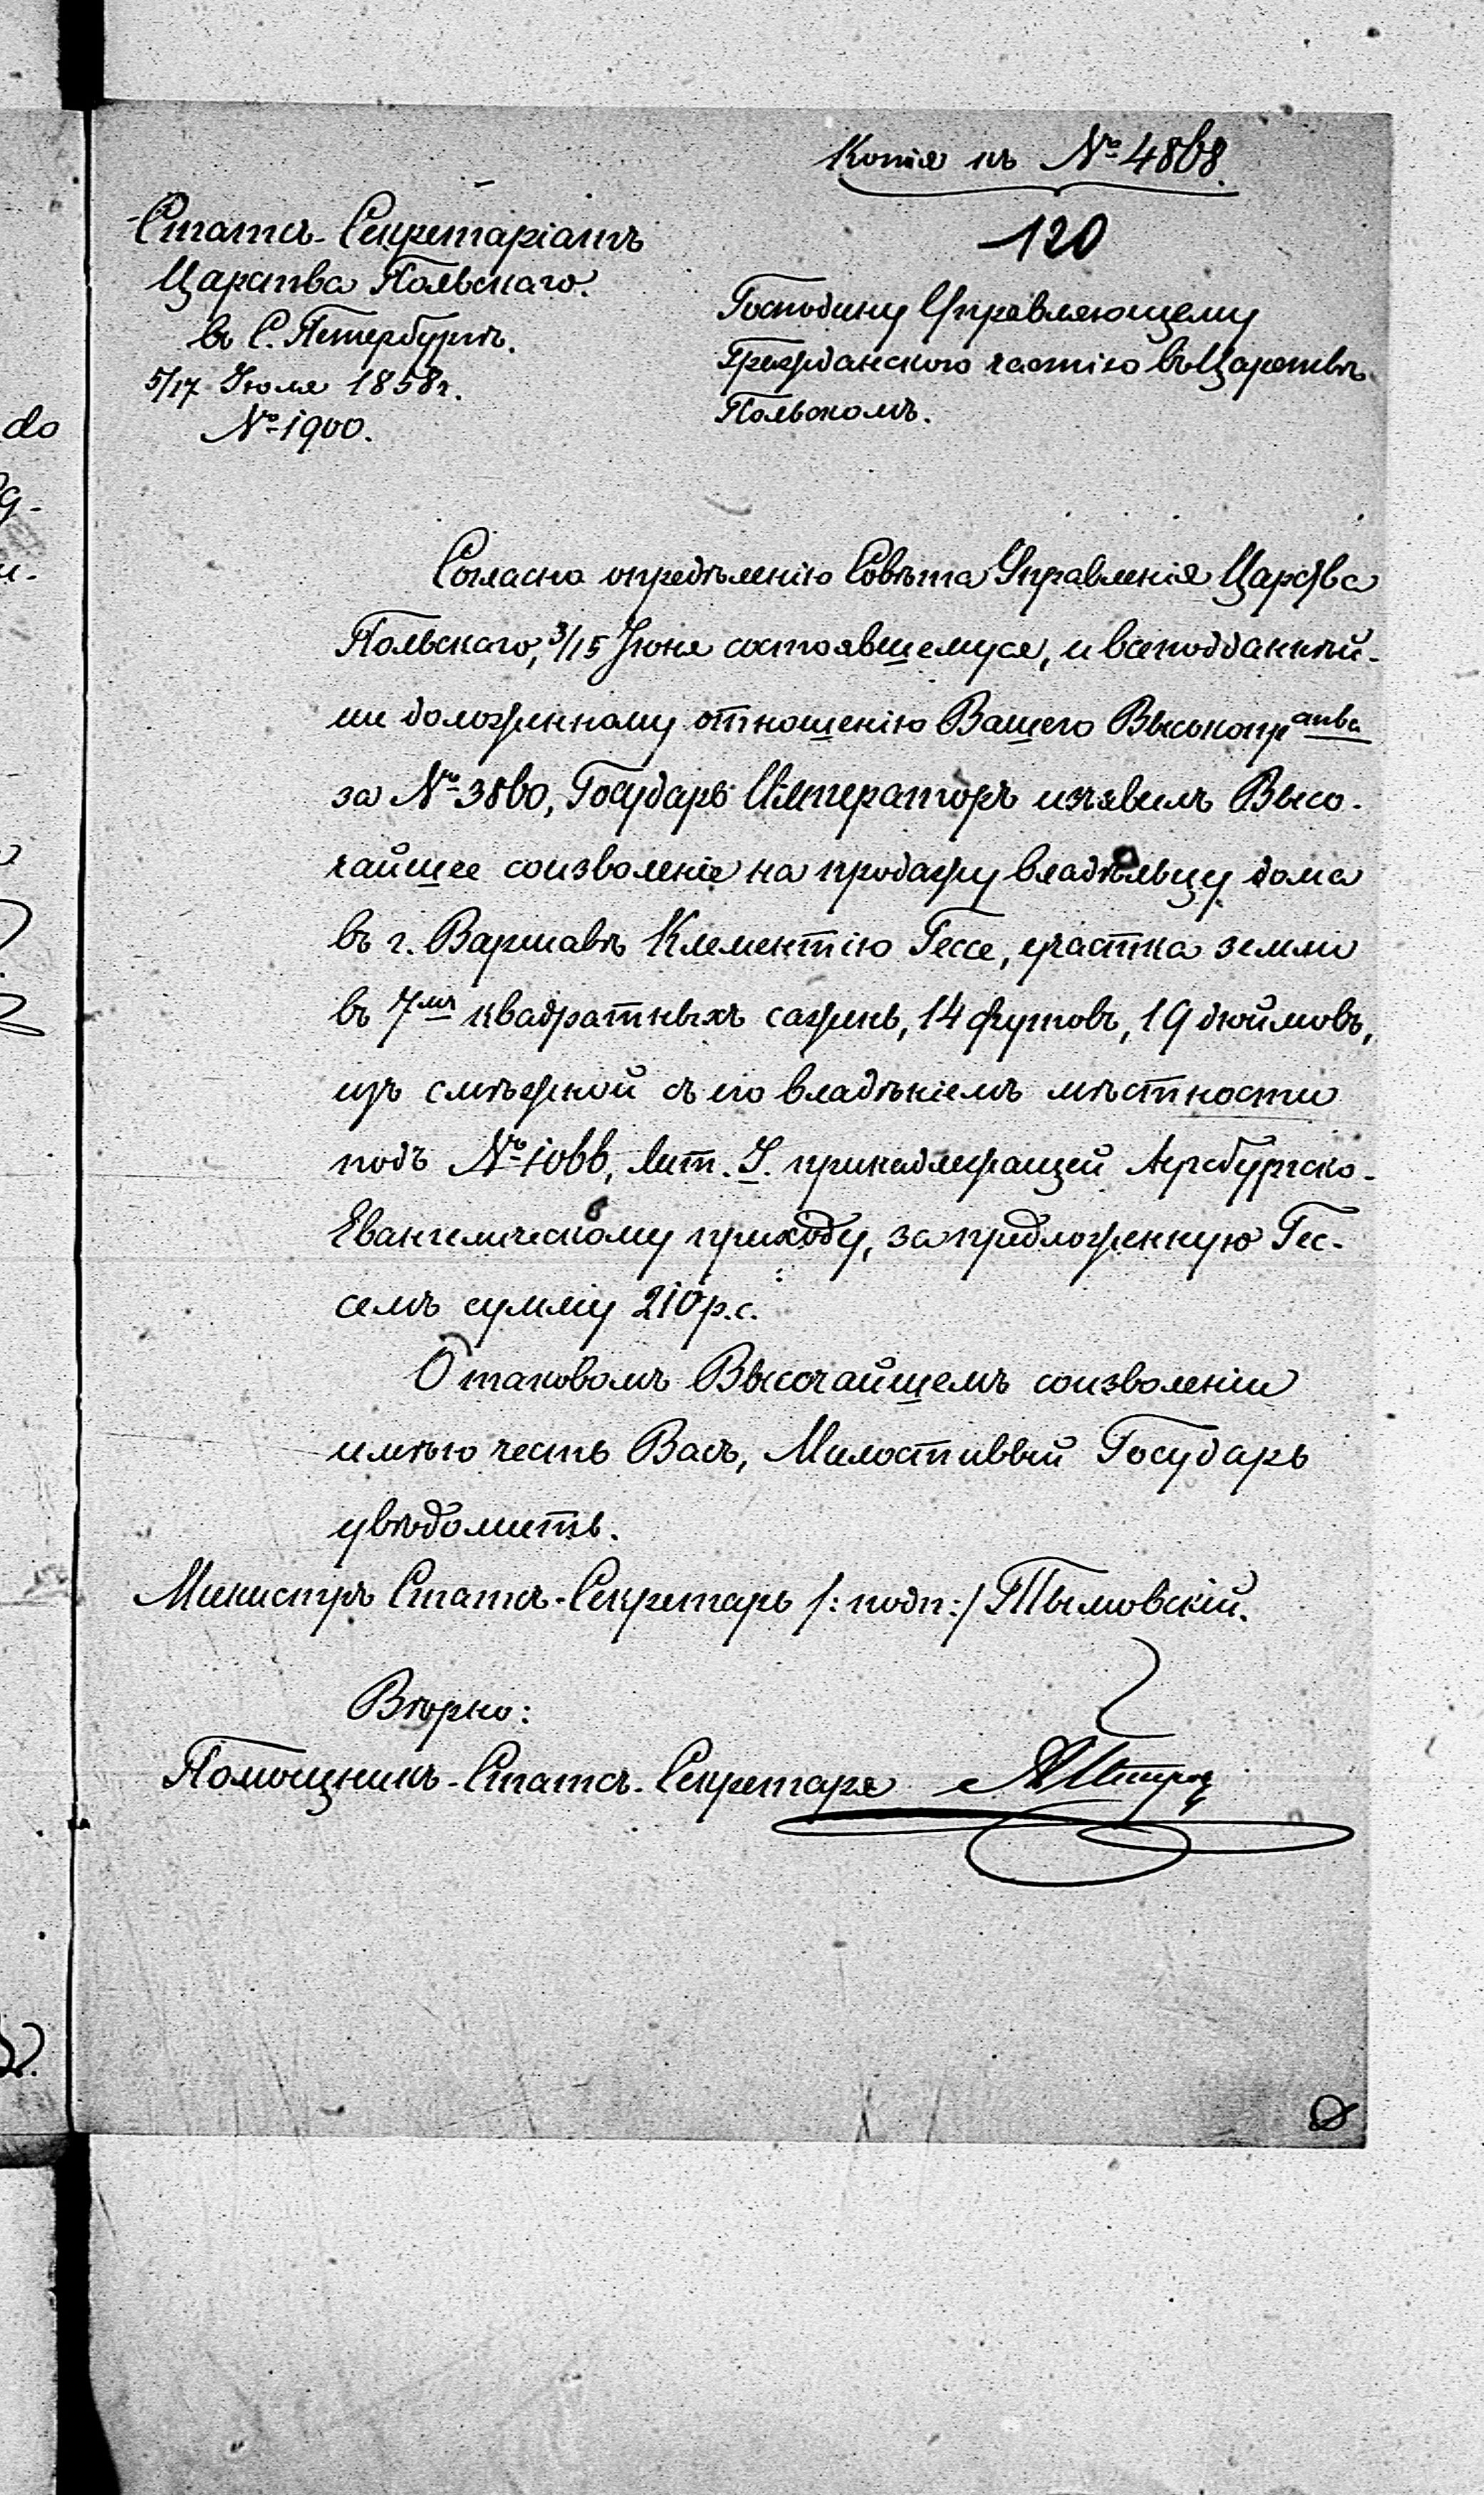 Копія къ № 4868.
120
Статсъ-Секретаріатъ
Царства Польскаго.
въ С. Петербургѣ.
5/17 Іюля 1858 г.
№ 1900.
Господину Управляющему
Гражданскою частію въ Царствѣ
Польскомъ.
Согласно опредѣленію Совѣта Управленія Царства
Польскаго, 3/15 Іюня состоявшемуся, и всеподданнѣй-
ше доложенному отношенію Вашего Высокопр-апва
за № 3860, Государь Императоръ изъявилъ Высо-
чайшее соизволеніе на продажу владѣльцу дома
въ г. Варшавѣ Клементію Гессе, участка земли
въ 7ми квадратныхъ сажень, 14 футовъ, 19 дюймовъ,
изъ смѣжной съ его владѣніемъ мѣстности
подъ № 1066, Лит. I. принадлежащей Аугсбургско-
Евангелическому приходу, за предложенную Гес-
семъ сумму 210 р. с.
О таковомъ Высочайшемъ соизволеніи
имѣю честь Васъ, Милостивый Государь
увѣдомить.
Министръ Статсъ-Секретарь /: подп :/ Тымовскій.
Вѣрно:
Помощникъ-Статсъ-Секретаря
do